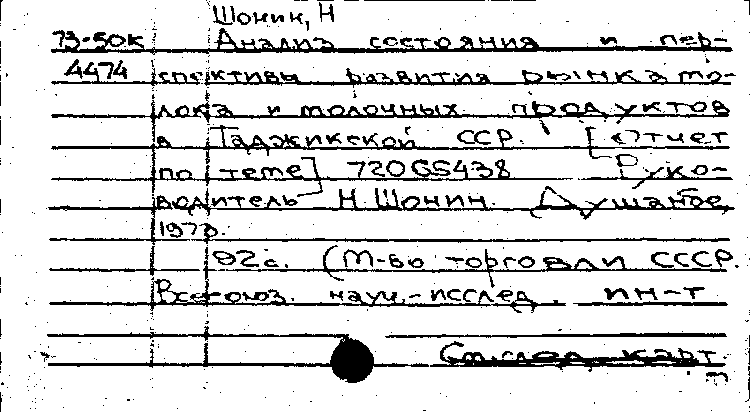 Шонин, Н
73-50К Анализ состояния и пер-
4474 спективы развития рынка мо-
лока и молочных продуктов
в Таджикской ССР. [Отчет
по теме] 72065438 Руко-
водитель Н. Шонин. Душанбе,
1973.
92 с. (М-во торговли СССР.
Всесоюз. науч.-исслед. ин-т
След. карт.